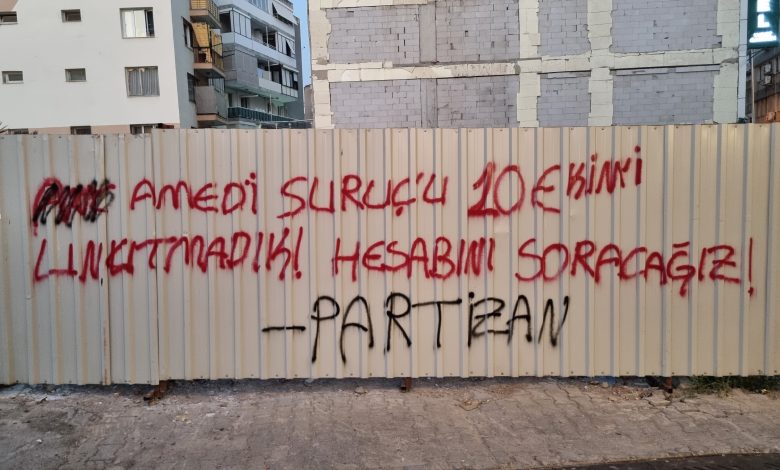 AMEDİ SURUÇ'U 10 EKİM'İ
UNUTMADIK! HESABINI SORACAĞIZ!
-PARTİZAN